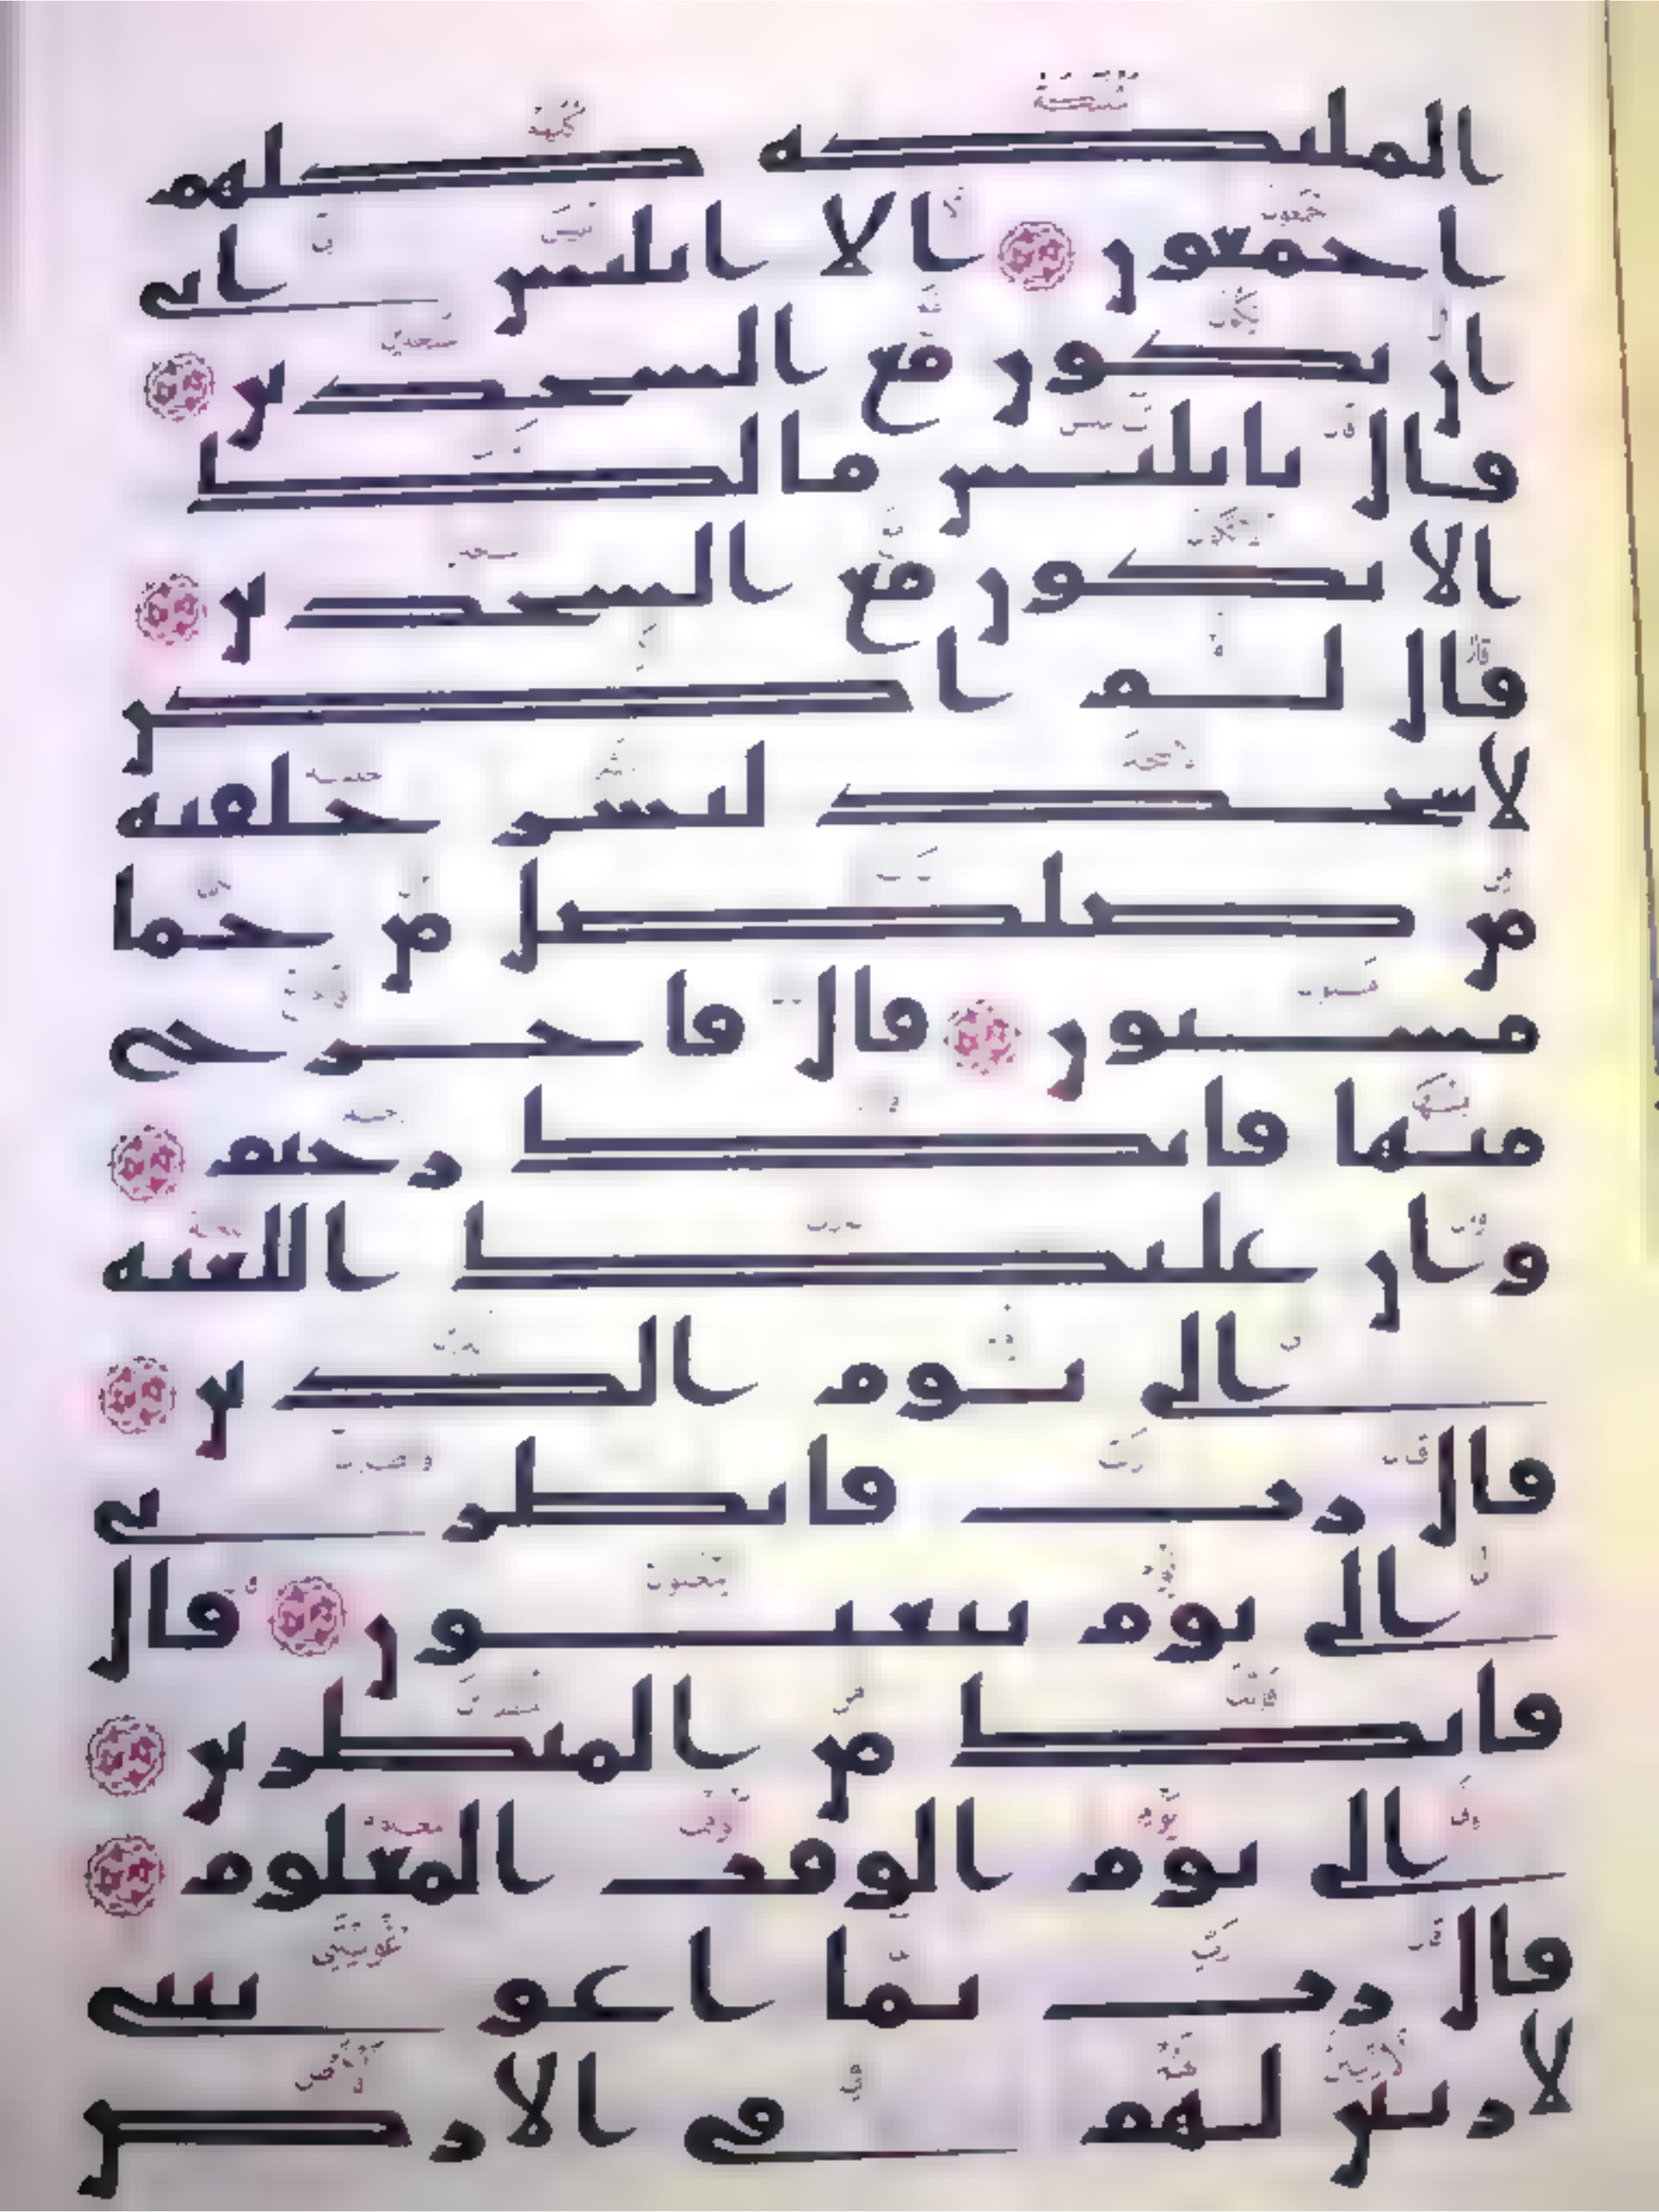 الملئكه كلهم
اجمعون الا ابليس ابى
ان يكون مع السجدين
قال يابليس مالك
الا تكون مع السجدين
قال لم اكن
لاسجد لبشر خلقته
من صلصل من حما
مسنون قال فاخرج
منها فانك رجيم
وان عليك اللعنه
الى يوم الدين
قال رب فانظرنى
الى يوم يبعثون قال
فانك من المنظرين
الى يوم الوقت المعلوم
قال رب بما اغويتنى
لازينن لهم فى الارض